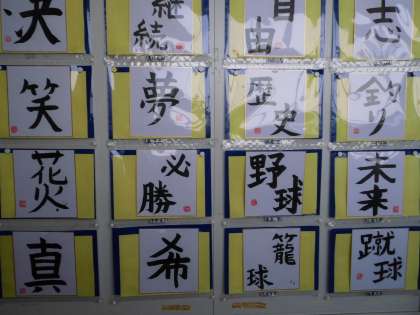 決
継続
自由
志
笑
夢
歴史
釣り
花火
必勝
野球
未来
真
希
籠球
蹴球